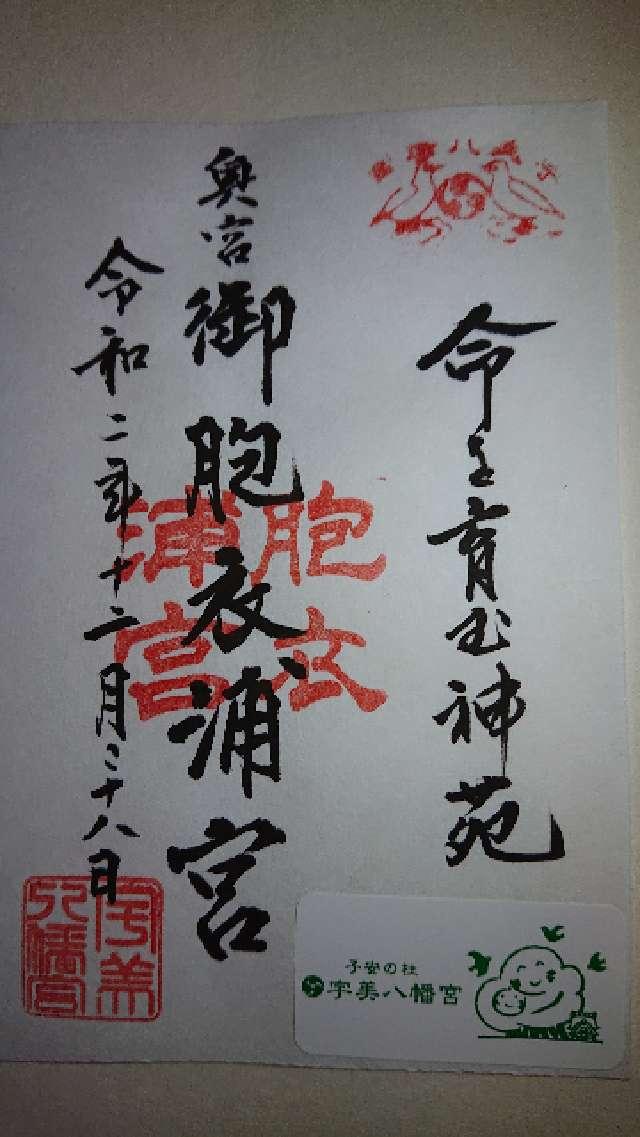 命を育む神苑
奥宮 御胞衣浦宮
令和二年十二月二十八日
胞衣
浦宮
宇美
八幡宮
子安の杜
宇美八幡宮